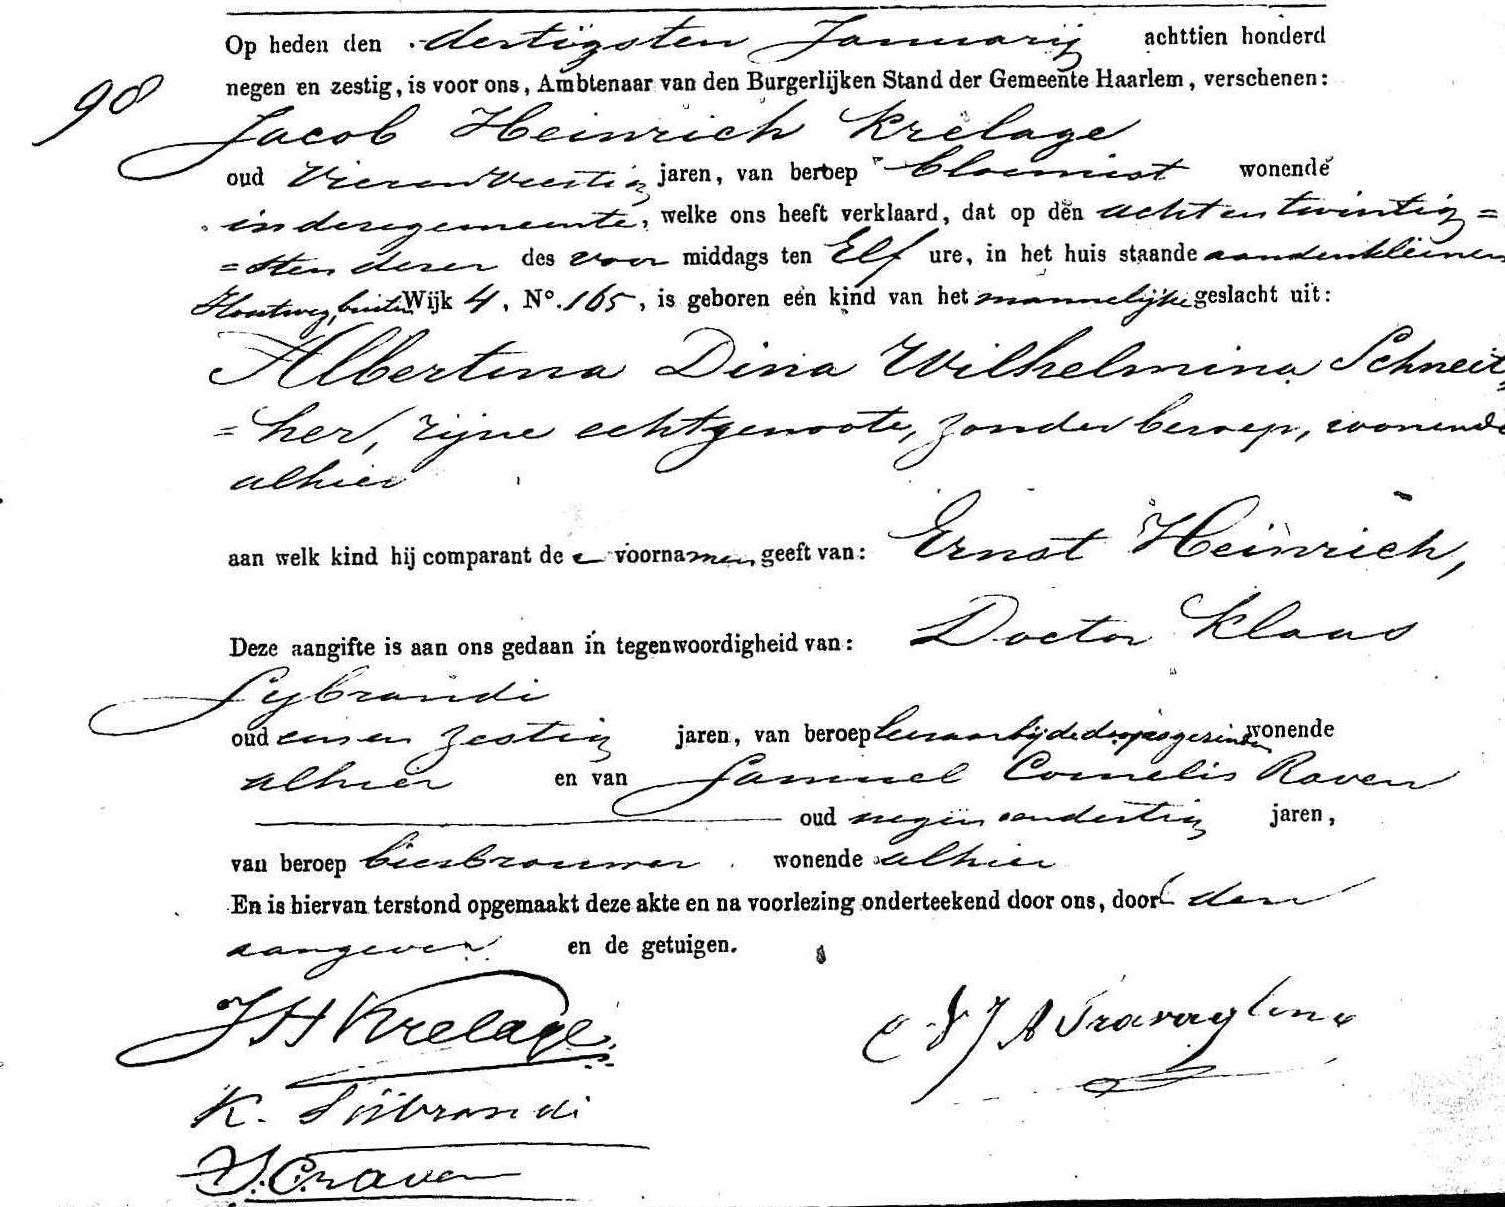 Op heden den dertigsten Januarij achttien honderd
98
negen en zestig, is voor ons, Ambtenaar van den Burgerlijken Stand der Gemeente Haarlem, verschenen:
Jacob Heinrich Krelage
oud vierenveertig jaren, van beroep bloemist wonende
in deze gemeente, welke ons heeft verklaard, dat op den acht en twintig=
=sten dezer des voor middags ten Elf ure, in het huis staande aan den kleinen
Houtweg, buiten Wijk 4, No. 165, is geboren een kind van het mannelijke geslacht uit:
Albertina Dina Wilhelmina Schneit,
=her, zijne echtgenoote, zonder beroep, wonende
alhier
aan welk kind hij comparant de voornamen geeft van: Ernst Heinrich,
Deze aangifte is aan ons gedaan in tegenwoordigheid van: Doctor Klaas
Sybrandi
oud een en zestig jaren, van beroep leeraar bij de doopsgezinden wonende
alhier en van Samuel Cornelis Raven
oud negen en dertig jaren,
van beroep bierbrouwer wonende alhier
En is hiervan terstond opgemaakt deze akte en na voorlezing onderteekend door ons, door den
aangever en de getuigen.
JH Krelage
K. Sijbrandi
S. C. Raven